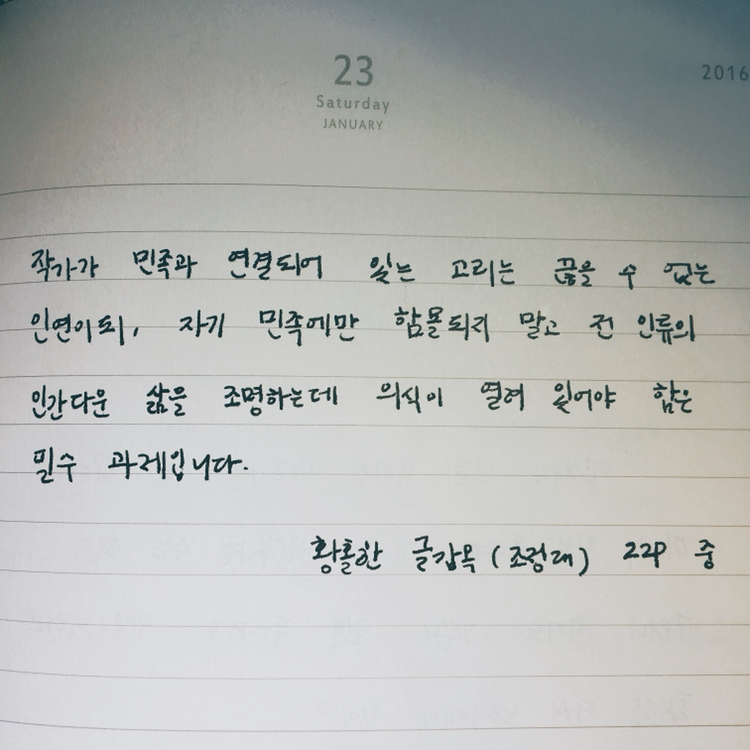 23
Saturday
JANUARY
2016
작가가 민족과 연결되어 있는 고리는 끊을 수 없는
인연이되, 자기 민족에만 함몰되지 말고 전 인류의
인간다운 삶을 조명하는데 의식이 열려 있어야 함은
필수 과제입니다.
황홀한 글감옥 (조정래) 22P 중